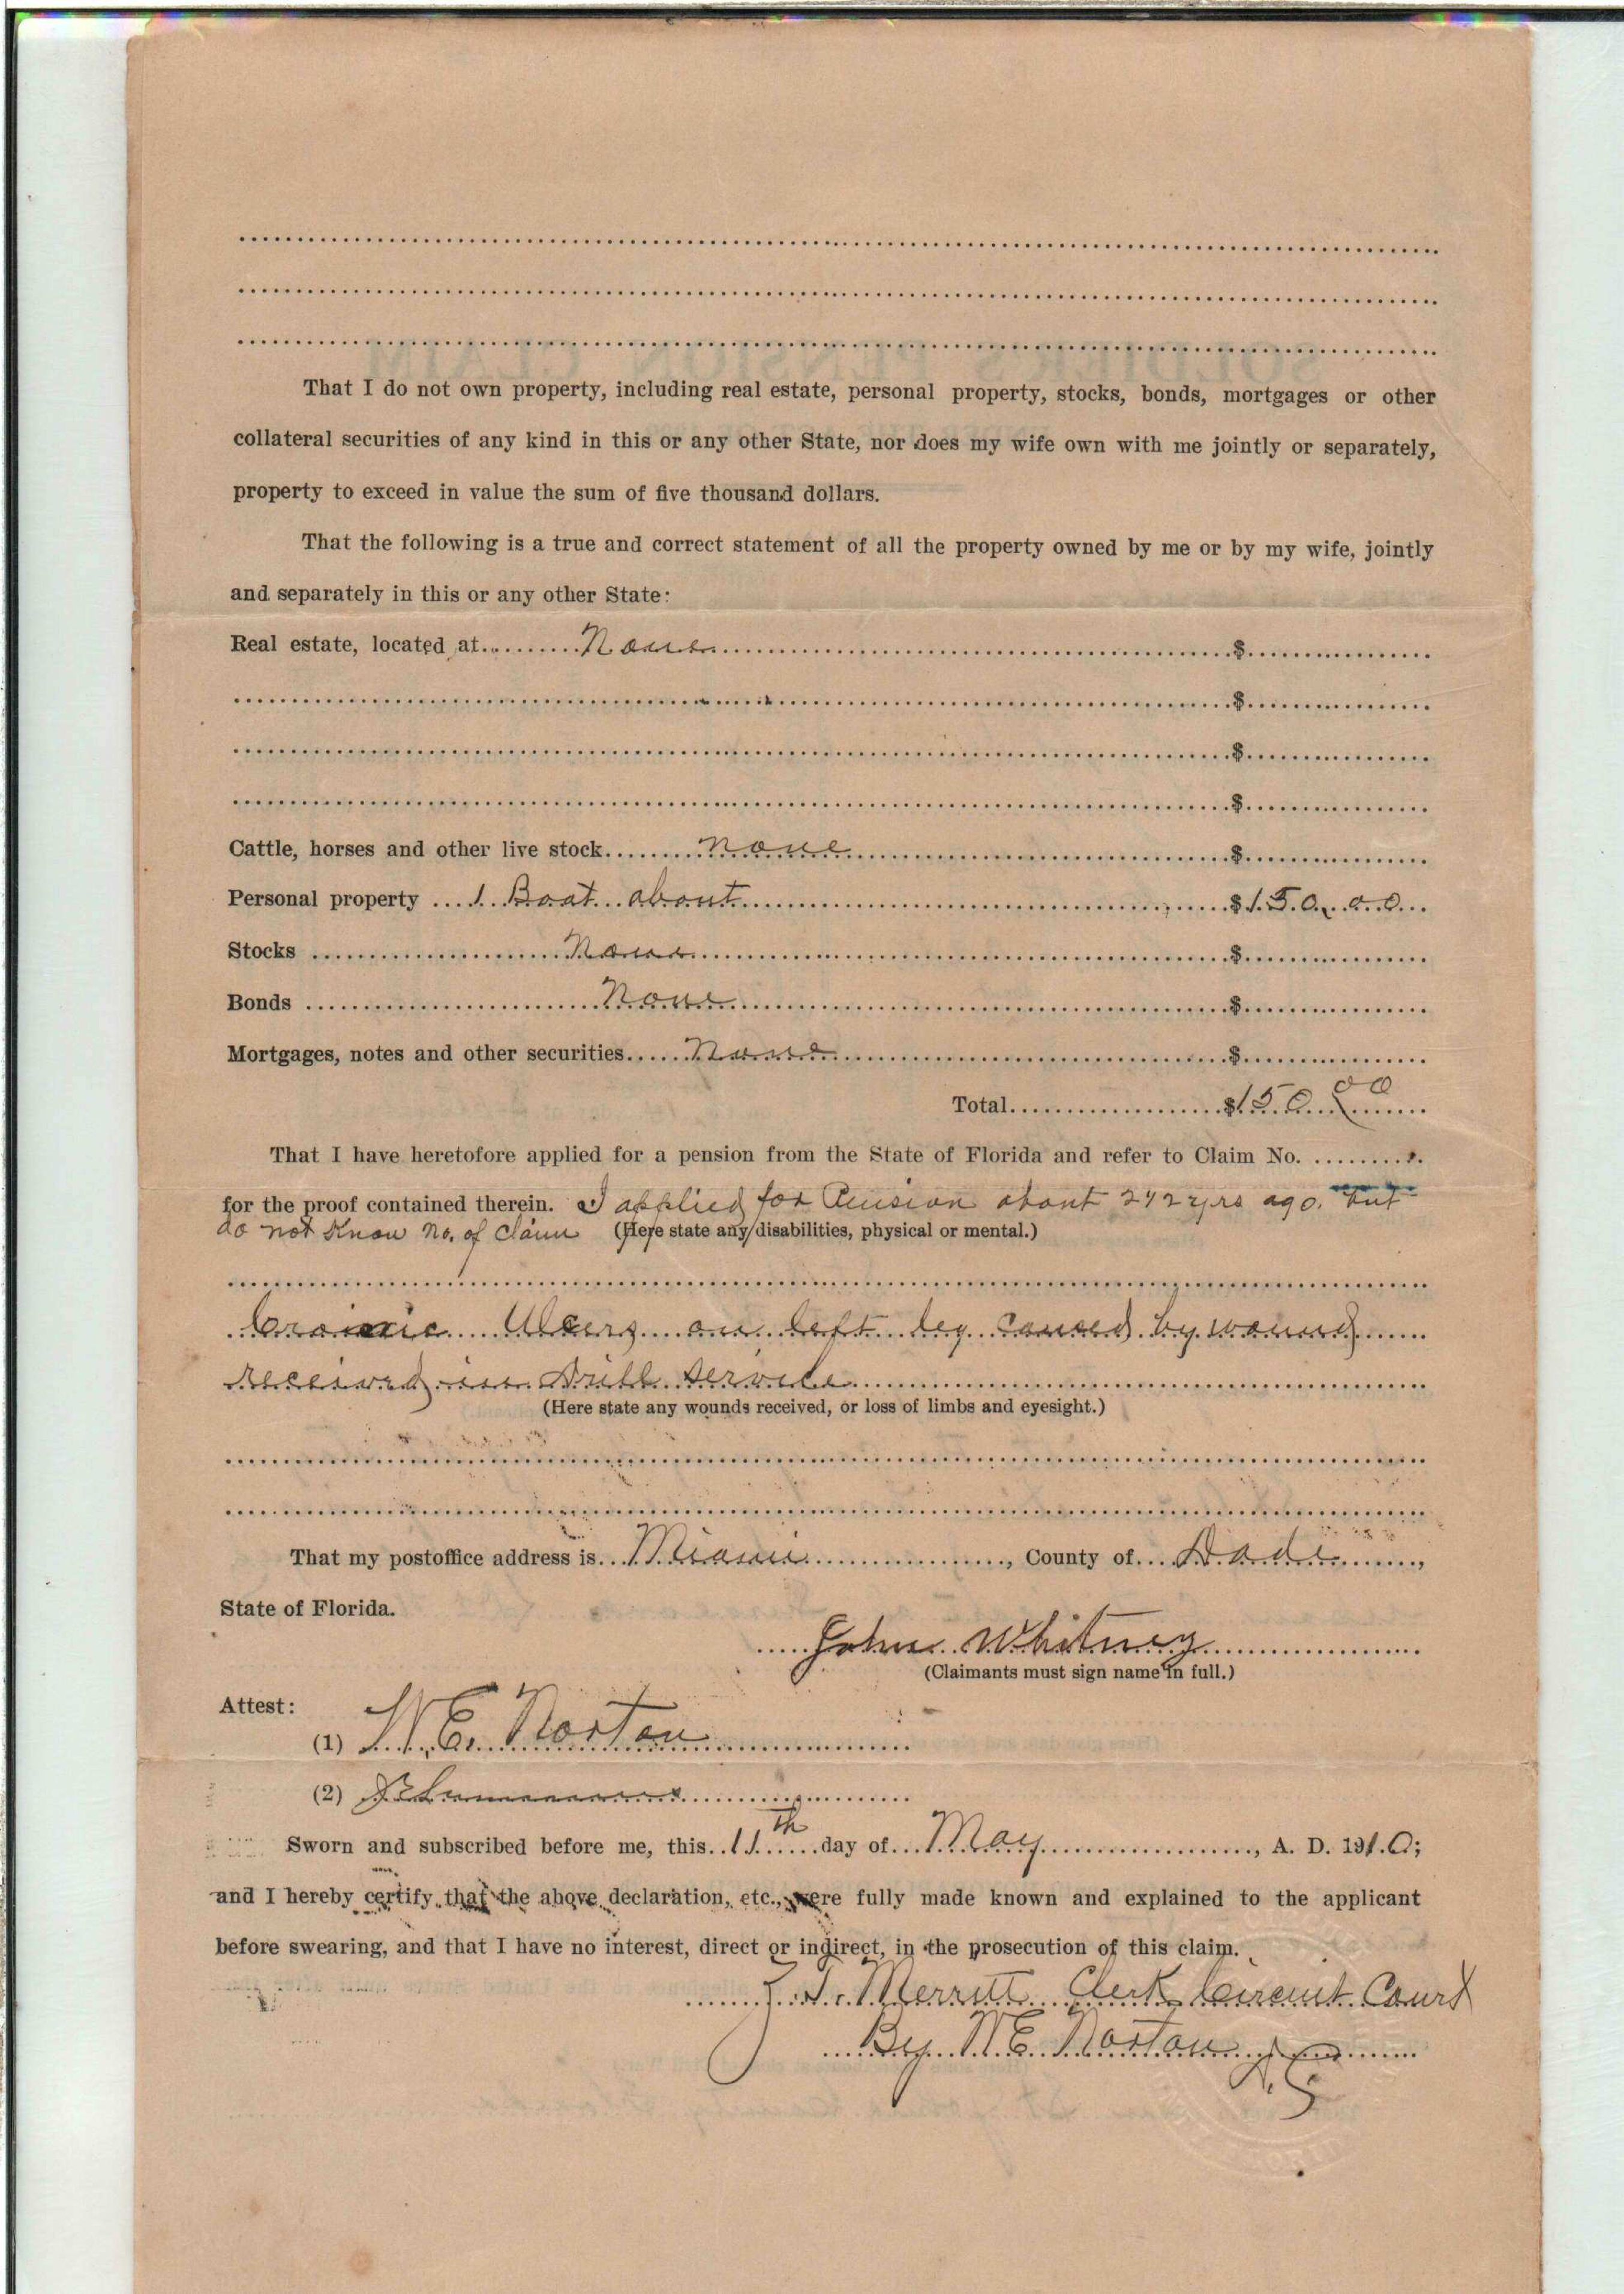 That I do not own property, including real estate, personal property, stocks, bonds, mortgages or other
collateral securities of any kind in this or any other State, nor does my wife own with me jointly or separately,
property to exceed in value the sum of five thousand dollars.
That the following is a true and correct statement of all the property owned by me or by my wife, jointly
and separately in this or any other State:
Real estate, located at None $
$
$
$
Cattle, horses and other live stock None $
Personal property 1 Boat about $150.00
Stocks None $
Bonds None $
Mortgages, notes and other securities None $
Total $150.00
That I have heretofore applied for a pension from the State of Florida and refer to Claim No.
for the proof contained therein. I applied for Pension about 2 yrs ago. but
do not Know No. of claim (Here state any disabilities, physical or mental.)
Cronic Ulcers on left leg caused by wound
received in service
(Here state any wounds received, or loss of limbs and eyesight.)
That my postoffice address is Miami, County of Dade,
State of Florida.
John Whitney
(Claimants must sign name in full.)
Attest:
(1) N. E. Norton
(2)
Sworn and subscribed before me, this 11th day of May, A. D. 1910;
and I hereby certify that the above declaration, etc., were fully made known and explained to the applicant
before swearing, and that I have no interest, direct or indirect, in the prosecution of this claim.
Z. T. Merritt Clerk Circuit Court
By N. E. Norton
D.C.